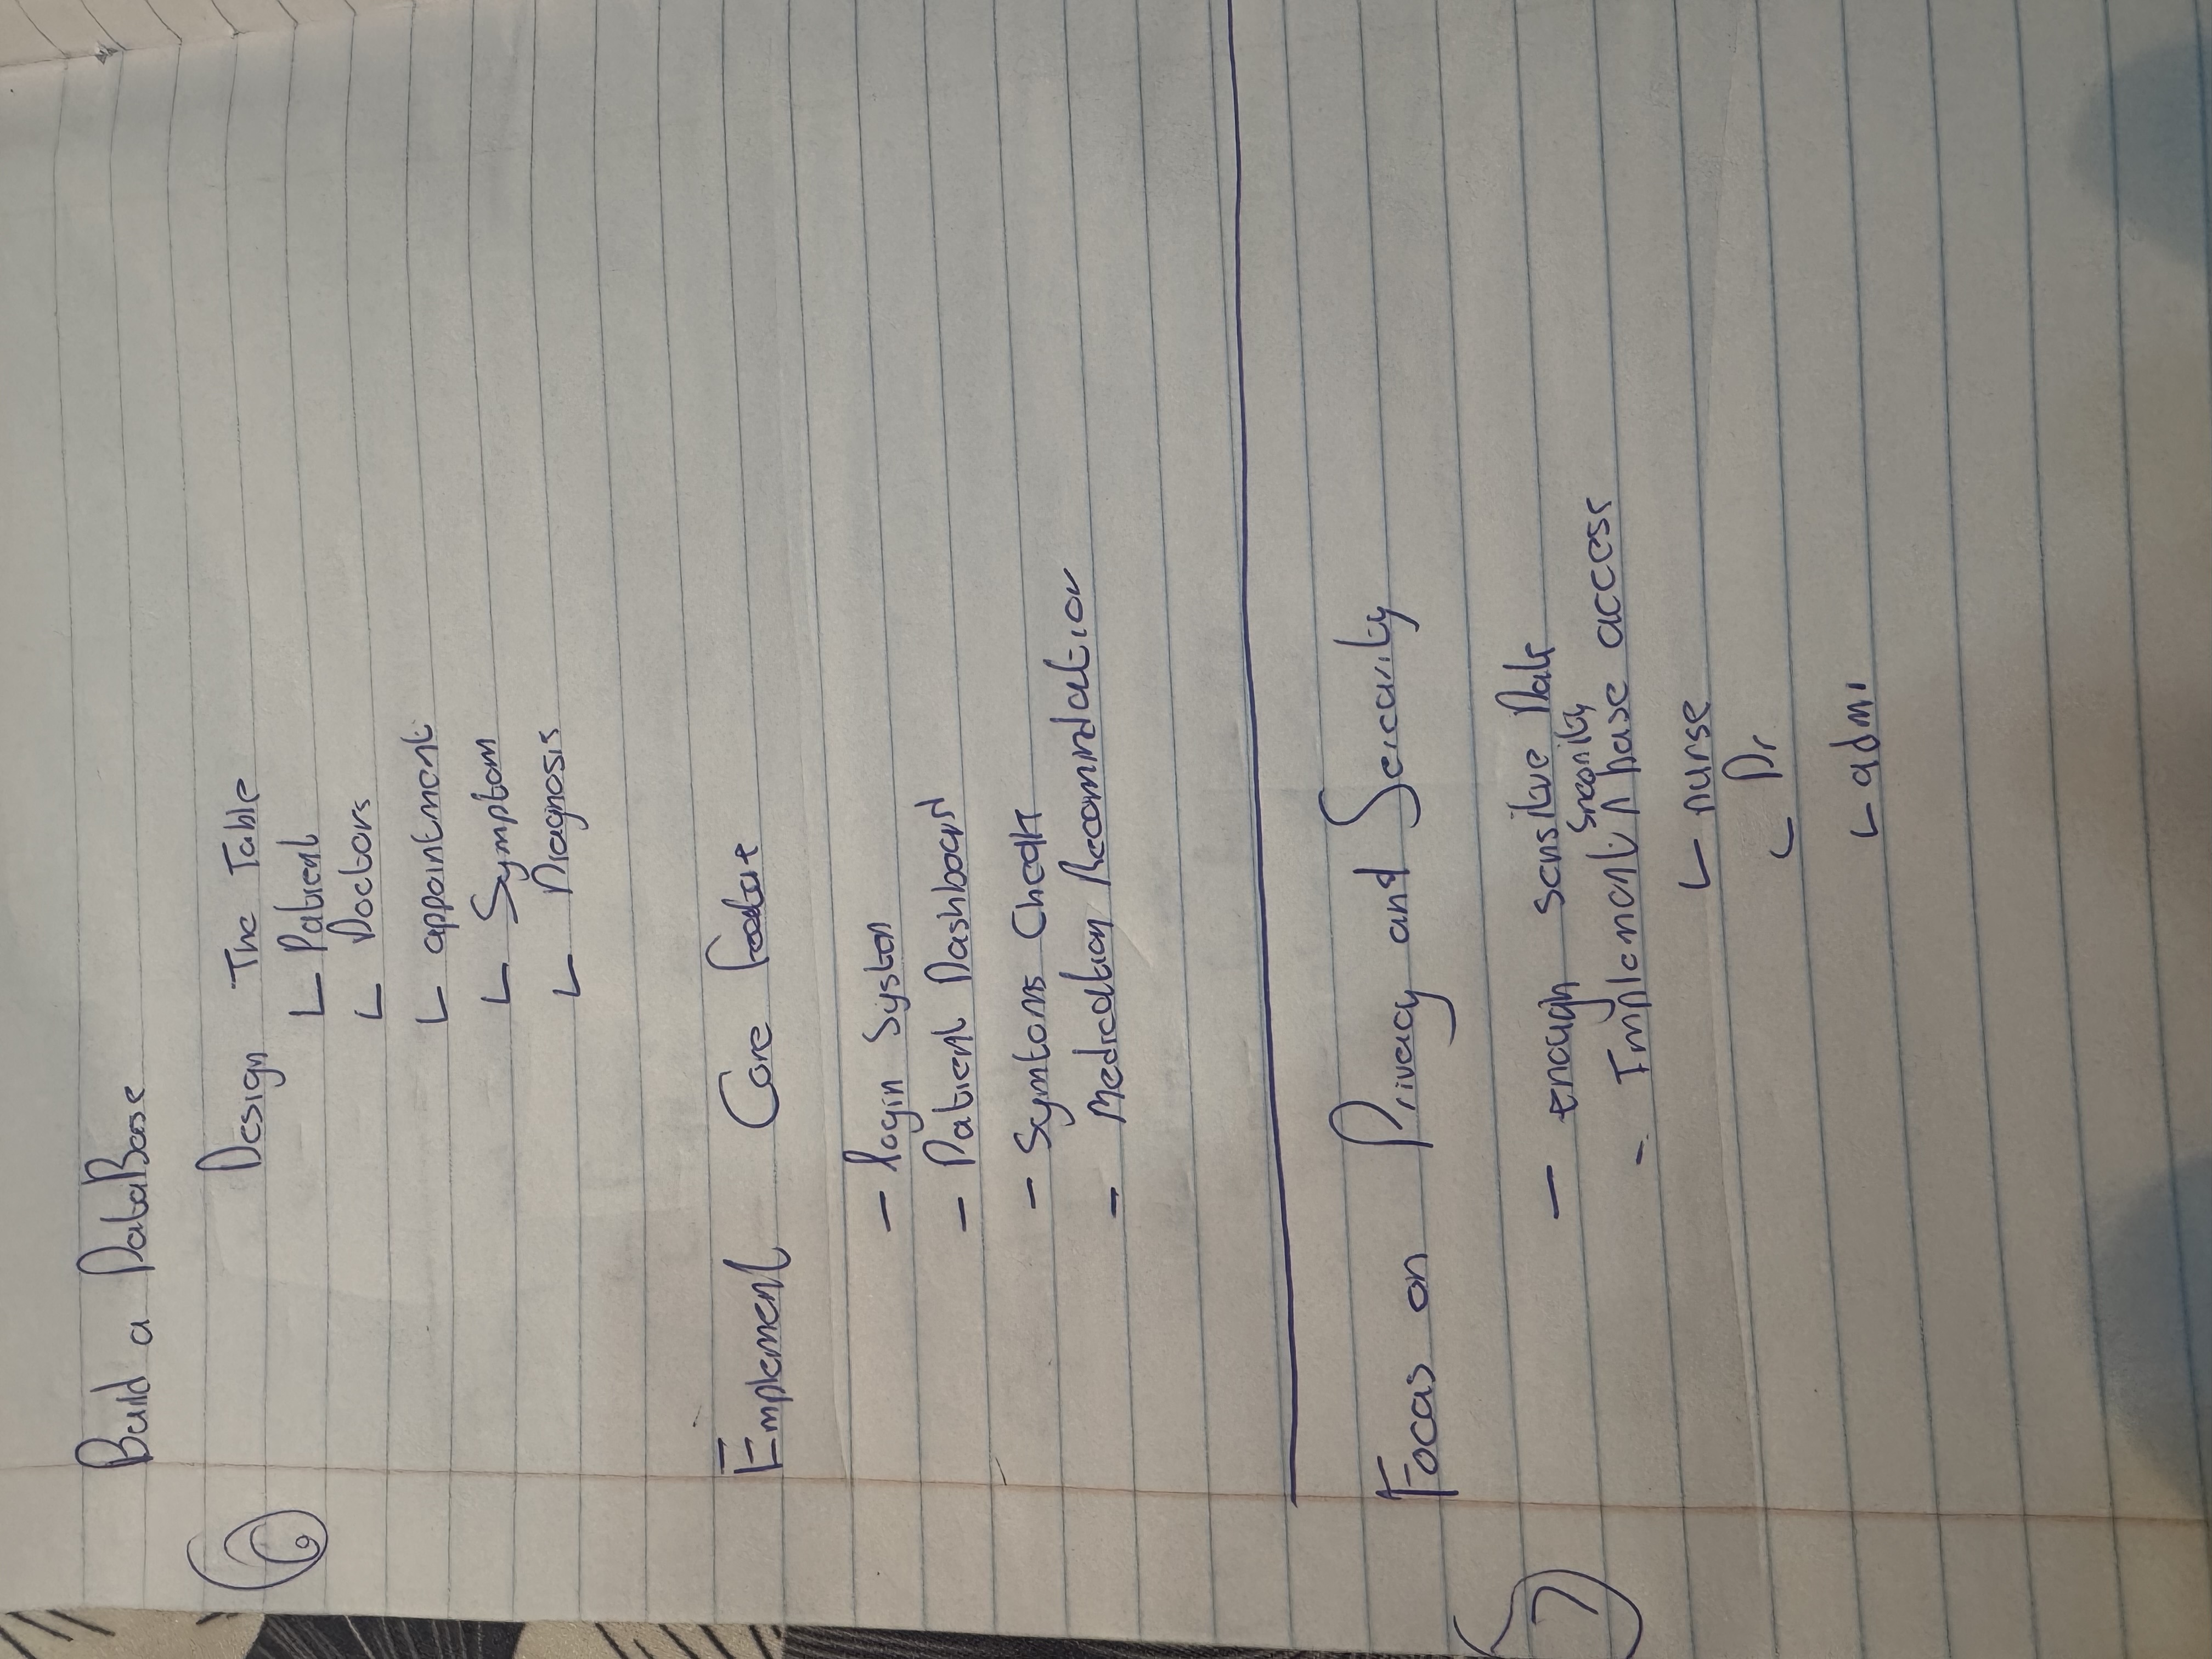 Build a DataBase
6
Design The Table
Patient
Doctors
appointment
Symptom
Diagnosis
Emplement Core Feature
- login System
- Patient Dashboard
- Symtoms Check
- Medication Recomindation
Focus on Privacy and Sercurity
7
- enough sensitive Data
- Implement security base access
nurse
Dr
admi